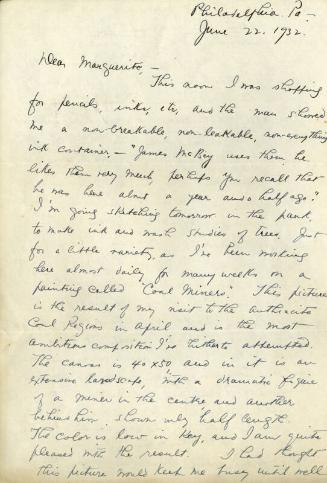 Philadelphia Pa –
June 22. 1932.
Dear Marguerite, –
This noon I was shopping
for pencils, inks, etc, and the man showed
me a non-breakable, non-leakable, non-everything
ink container, – "James McBey uses them, he
likes them very much, perhaps you recall that
he was here about a year and a half ago."
I'm going sketching tomorrow in the park,
to make ink and wash studies of trees. Just
for a little variety, as I've been working
here almost daily for many weeks on a
painting called "Coal Miners". This picture
is the result of my visit to the anthracite
Coal Regions in April and is the most
ambitious composition I've hitherto attempted.
The canvas is 40 x 50 and in it is an
extensive landscape, with a dramatic figure
of a miner in the centre and another
behind him shown only half length.
The color is low in key, and I am quite
pleased with the result. I had thought
this picture would keep me busy until well